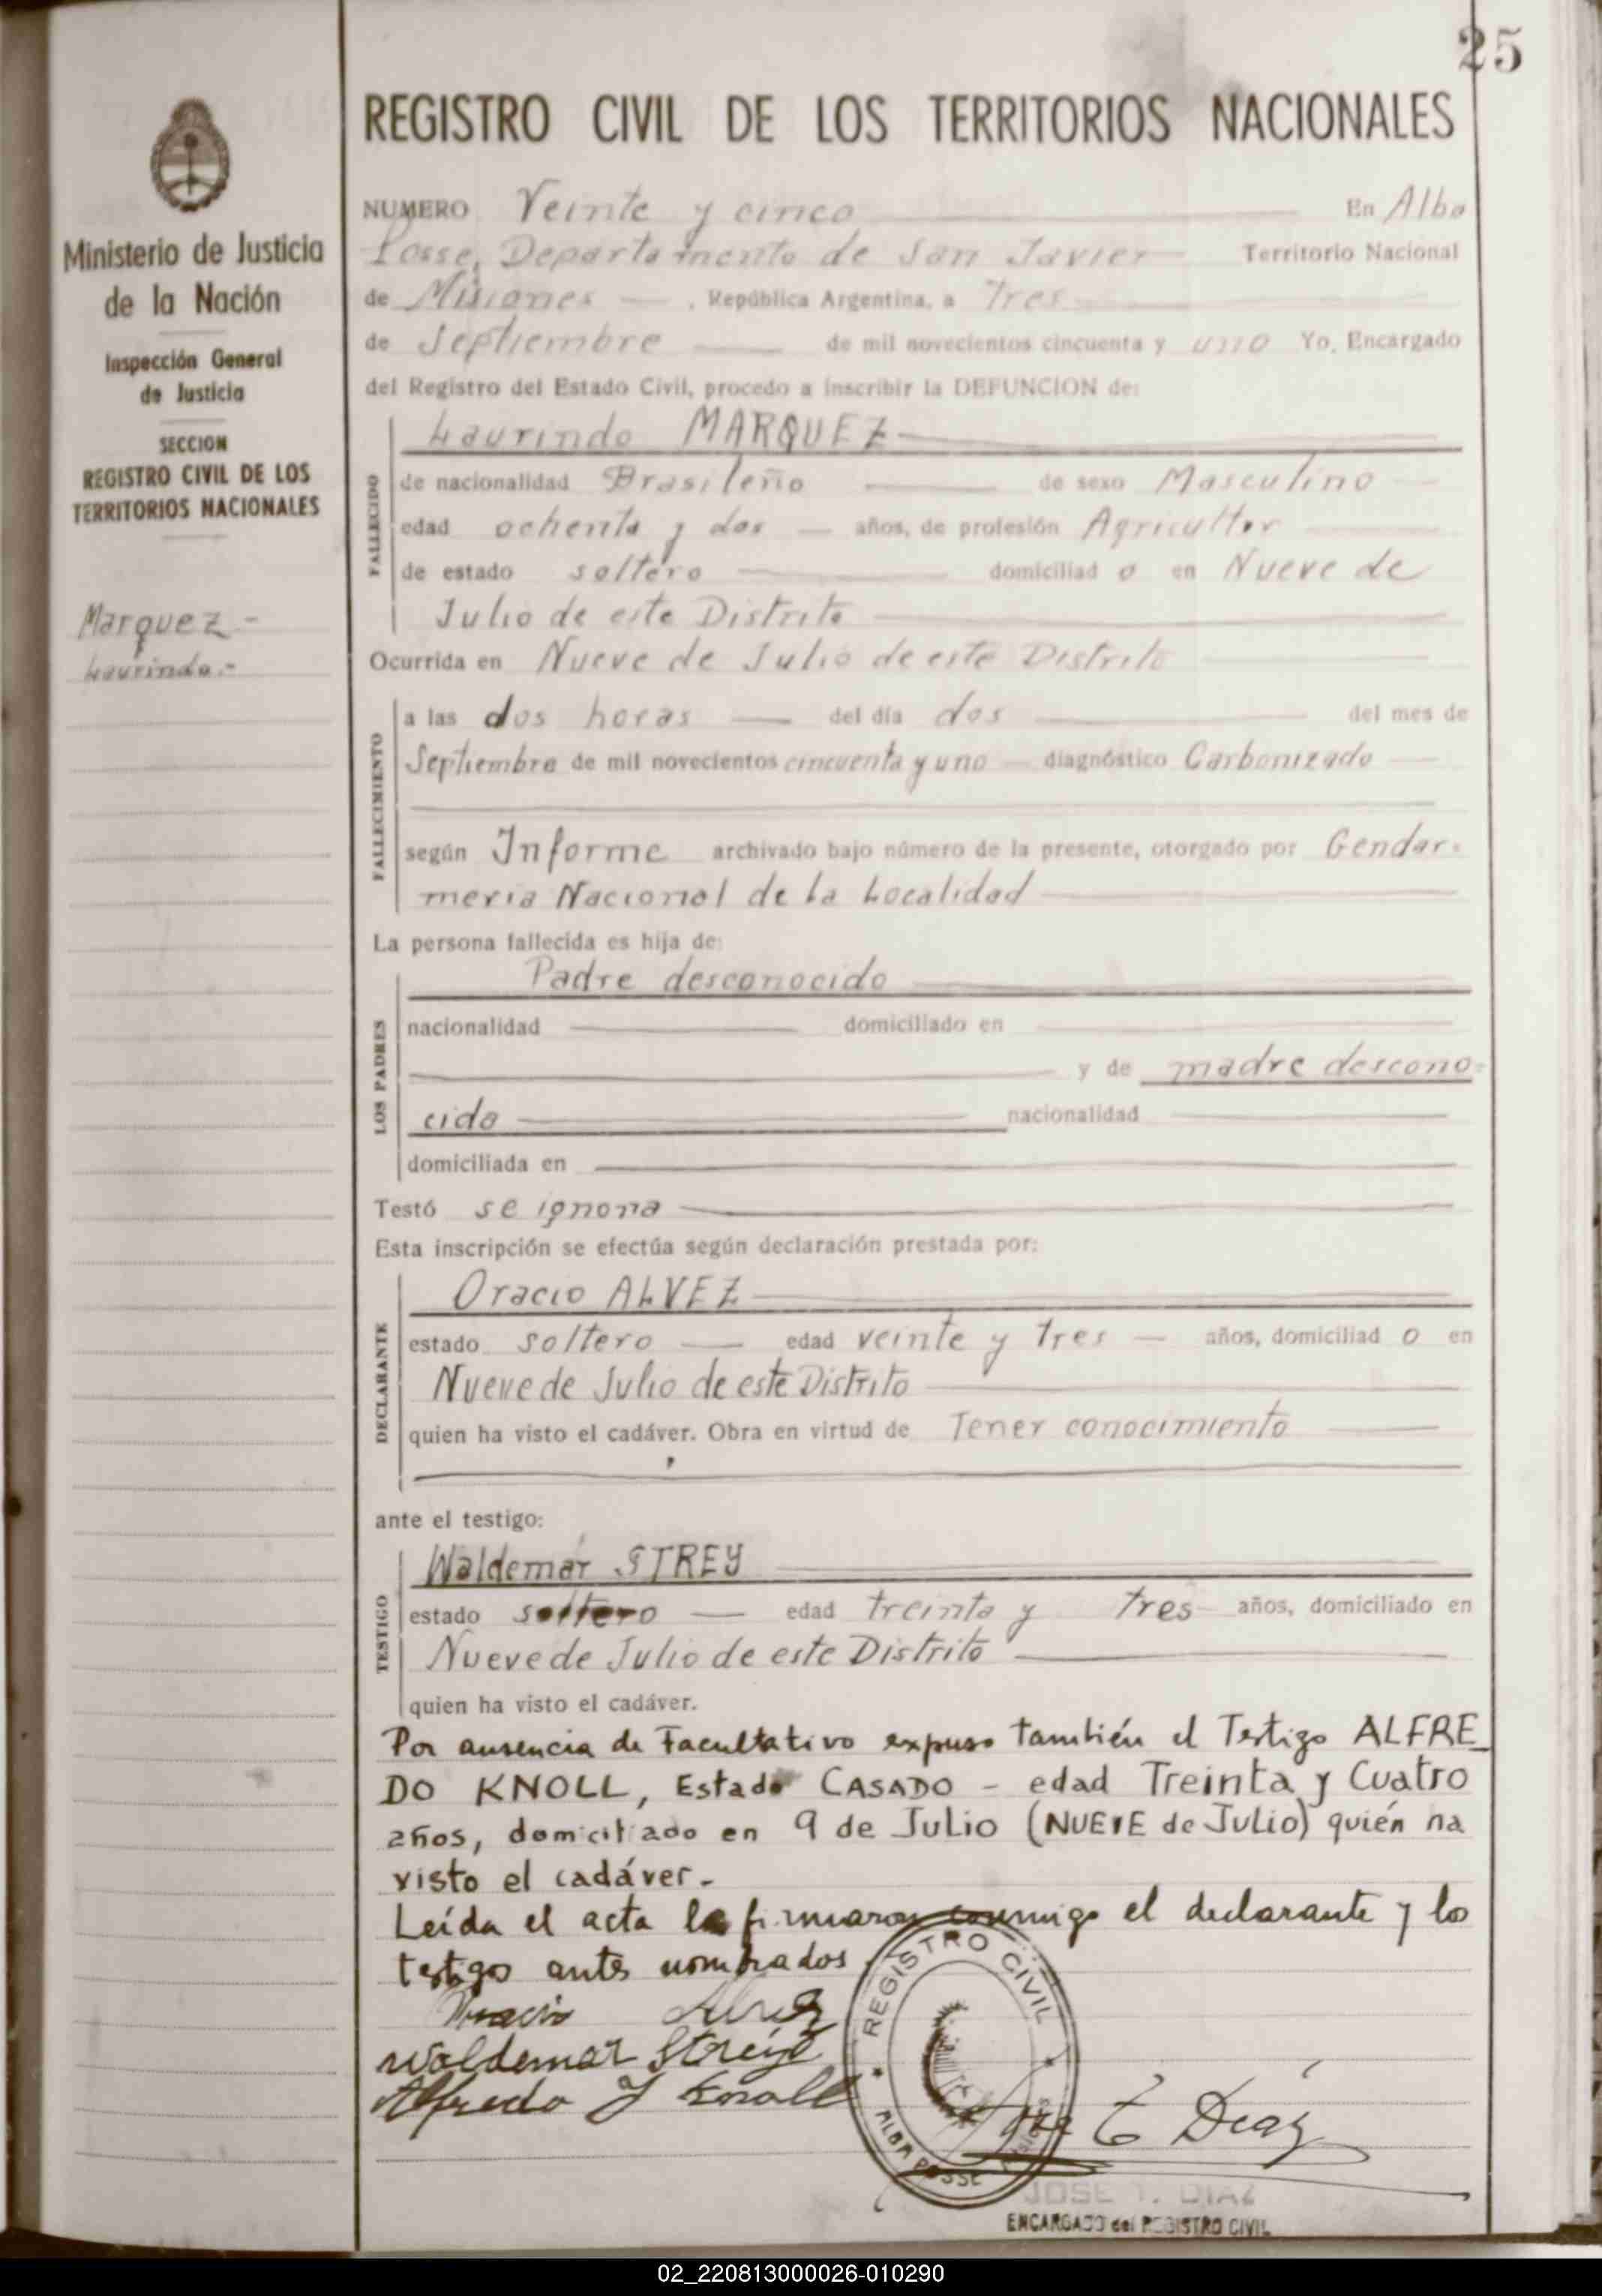 25
REGISTRO CIVIL DE LOS TERRITORIOS NACIONALES
Ministerio de Justicia
de la Nación
Inspección General
de Justicia
SECCION
REGISTRO CIVIL DE LOS
TERRITORIOS NACIONALES
Marquez -
Laurindo.-
NUMERO Veinte y cinco En Alba
Posse, Departamento de San Javier Territorio Nacional
de Misiones , República Argentina, a Tres
de Septiembre de mil novecientos cincuenta y uno Yo, Encargado
del Registro del Estado Civil, procedo a inscribir la DEFUNCION de:
FALLECIDO
Laurindo MARQUEZ
de nacionalidad Brasileño de sexo Masculino
edad ochenta y dos años, de profesión Agricultor
de estado soltero domiciliad o en Nueve de
Julio de este Distrito
Ocurrida en Nueve de Julio de este Distrito
FALLECIMIENTO
a las dos horas del día dos del mes de
Septiembre de mil novecientos cincuenta y uno diagnóstico Carbonizado
según Informe archivado bajo número de la presente, otorgado por Gendar-
meria Nacional de la Localidad
La persona fallecida es hija de:
LOS PADRES
Padre desconocido
nacionalidad domiciliado en
y de madre descono-
cida nacionalidad
domiciliada en
Testó se ignora
Esta inscripción se efectúa según declaración prestada por:
DECLARANTE
Oracio ALVEZ
estado soltero edad veinte y tres años, domiciliad o en
Nueve de Julio de este Distrito
quien ha visto el cadáver. Obra en virtud de Tener conocimiento
ante el testigo:
TESTIGO
Waldemar STREY
estado soltero edad treinta y tres años, domiciliado en
Nueve de Julio de este Distrito
quien ha visto el cadáver.
Por ausencia de Facultativo expuso también el Testigo ALFRE
DO KNOLL, Estado CASADO - edad Treinta y Cuatro
años, domiciliado en 9 de Julio (NUEVE de Julio) quién ha
visto el cadáver.-
Leída el acta la firmaron conmigo el declarante y los
testigos antes nombrados
Waldemar Streiy
Alfredo J Knoll
REGISTRO CIVIL
ALBA POSSE MISIONES
Jose T Diaz
JOSE T. DIAZ
ENCARGADO del REGISTRO CIVIL
02_220813000026-010290